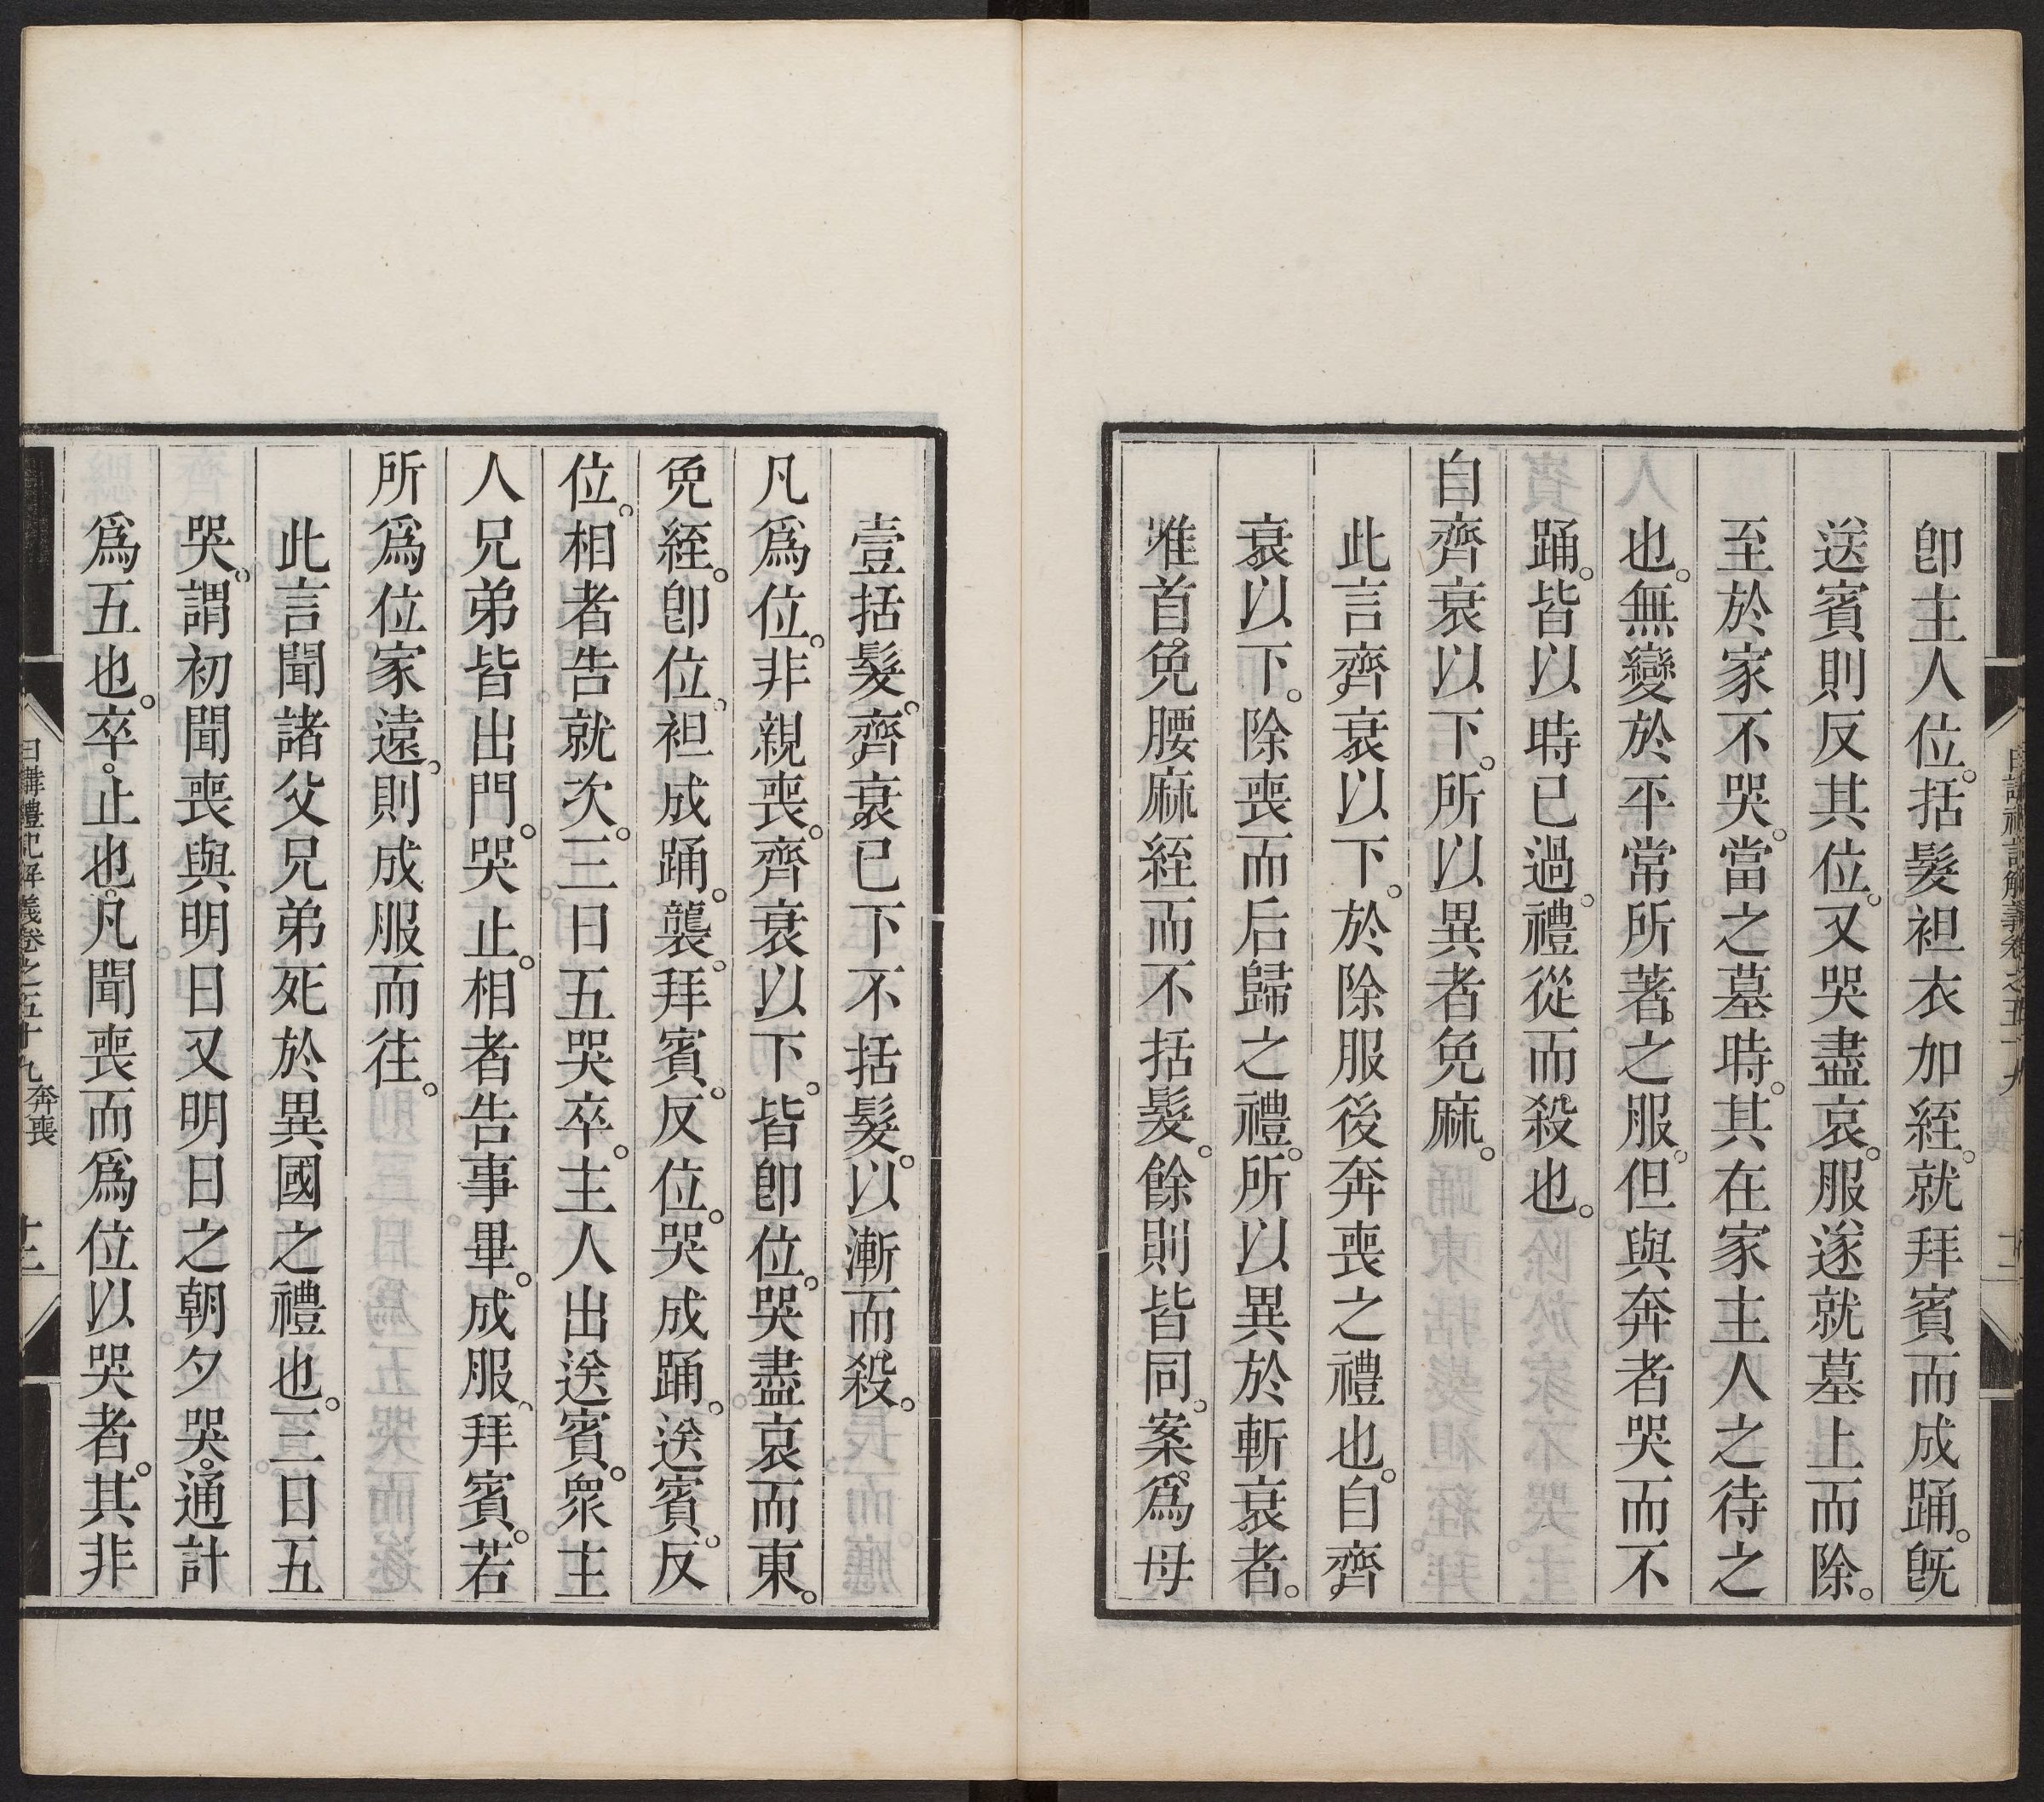 日講禮記解義卷之五十九
十二
卽主人位。括髮袒衣加絰。就拜賓而成踊。旣
送賓則反其位。又哭盡哀。服遂就墓上而除。
至於家不哭。當之墓時。其在家主人之待之
也。無變於平常所著之服。但與奔者哭而不
踊。皆以時已過。禮從而殺也。
自齊衰以下。所以異者免麻。
此言齊衰以下。於除服後奔喪之禮也。自齊
衰以下。除喪而后歸之禮。所以異於斬衰者。
惟首免腰麻絰而不括髮。餘則皆同。案。爲母
壹括髮。齊衰已下不括髮。以漸而殺。
凡爲位。非親喪。齊衰以下。皆卽位。哭盡哀而東。
免絰。卽位。袒成踊。襲。拜賓。反位。哭成踊。送賓。反
位。相者告就次。三日五哭卒。主人出送賓。衆主
人兄弟皆出門。哭止。相者告事畢。成服。拜賓。若
所爲位家遠。則成服而往。
此言聞諸父兄弟死於異國之禮也。三日五
哭。謂初聞喪與明日又明日之朝夕哭。通計
爲五也。卒。止也。凡聞喪而爲位以哭者。其非
日講禮記解義卷之五十九 奔喪
十三